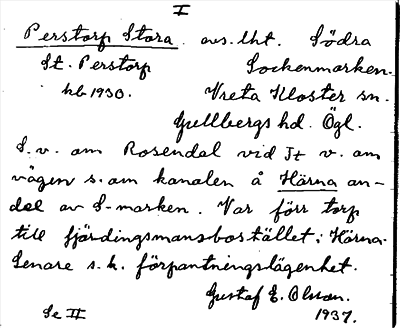 I
Perstorp Stora. avs. lht. Södra
St. Perstorp Sockenmarken.
kb 1930. Vreta Kloster sn.
Gullbergs hd. Ögl.
S.v. om Rosendal vid St v. om
vägen s. om kanalen å Härna an-
del av S-marken. Var förr torp
till fjärdingsmansbostället i Härna.
Senare s.k. förpantningslägenhet.
Gustaf E. Olsson.
Se II 1937.